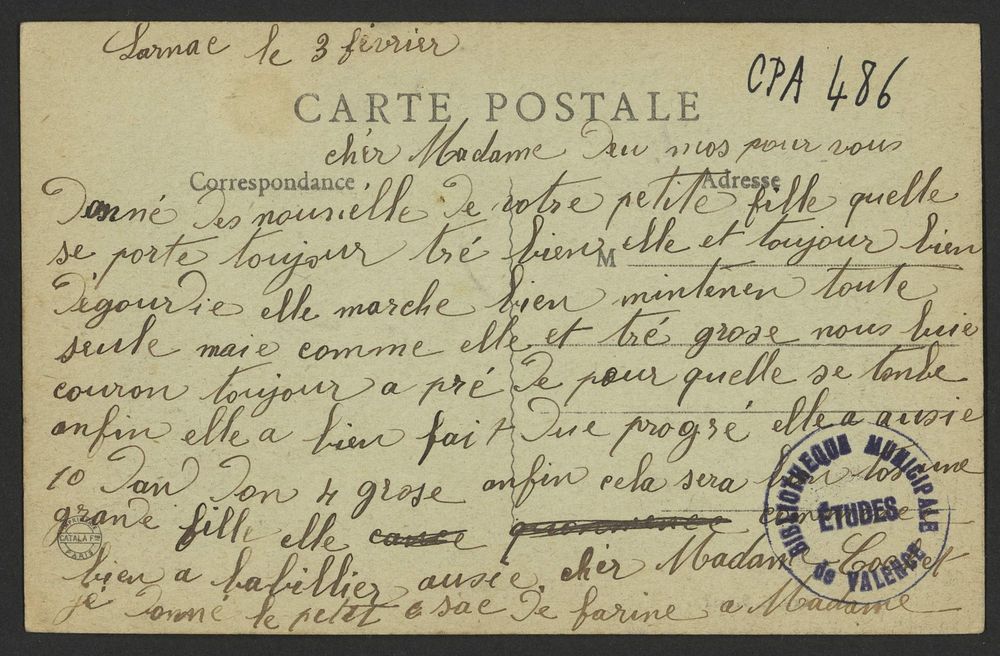 Larnac le 3 février
CPA 486
CARTE POSTALE
chér Madame Deu mos pour vous
Correspondance
Adresse
Donné Des nouvielle De votre petite fille quelle
se porte toujour tré bien elle et toujour bien
M
Dégourdie elle marche bien mintenen toute
seule maie comme elle et tré grose nous luie
couron toujour a pré De peur quelle se tonbe
anfin elle a bien fait Due progré elle a ausie
10 Dan Don 4 grose anfin cela sera bien tos une
grande fille elle
bien a babillier ausie cher Madame
je Donné le petit sac De farine a Madame
BIBLIOTHEQUE MUNICIPALE
ÉTUDES
de VALENCE
CATALA Fres
PARIS